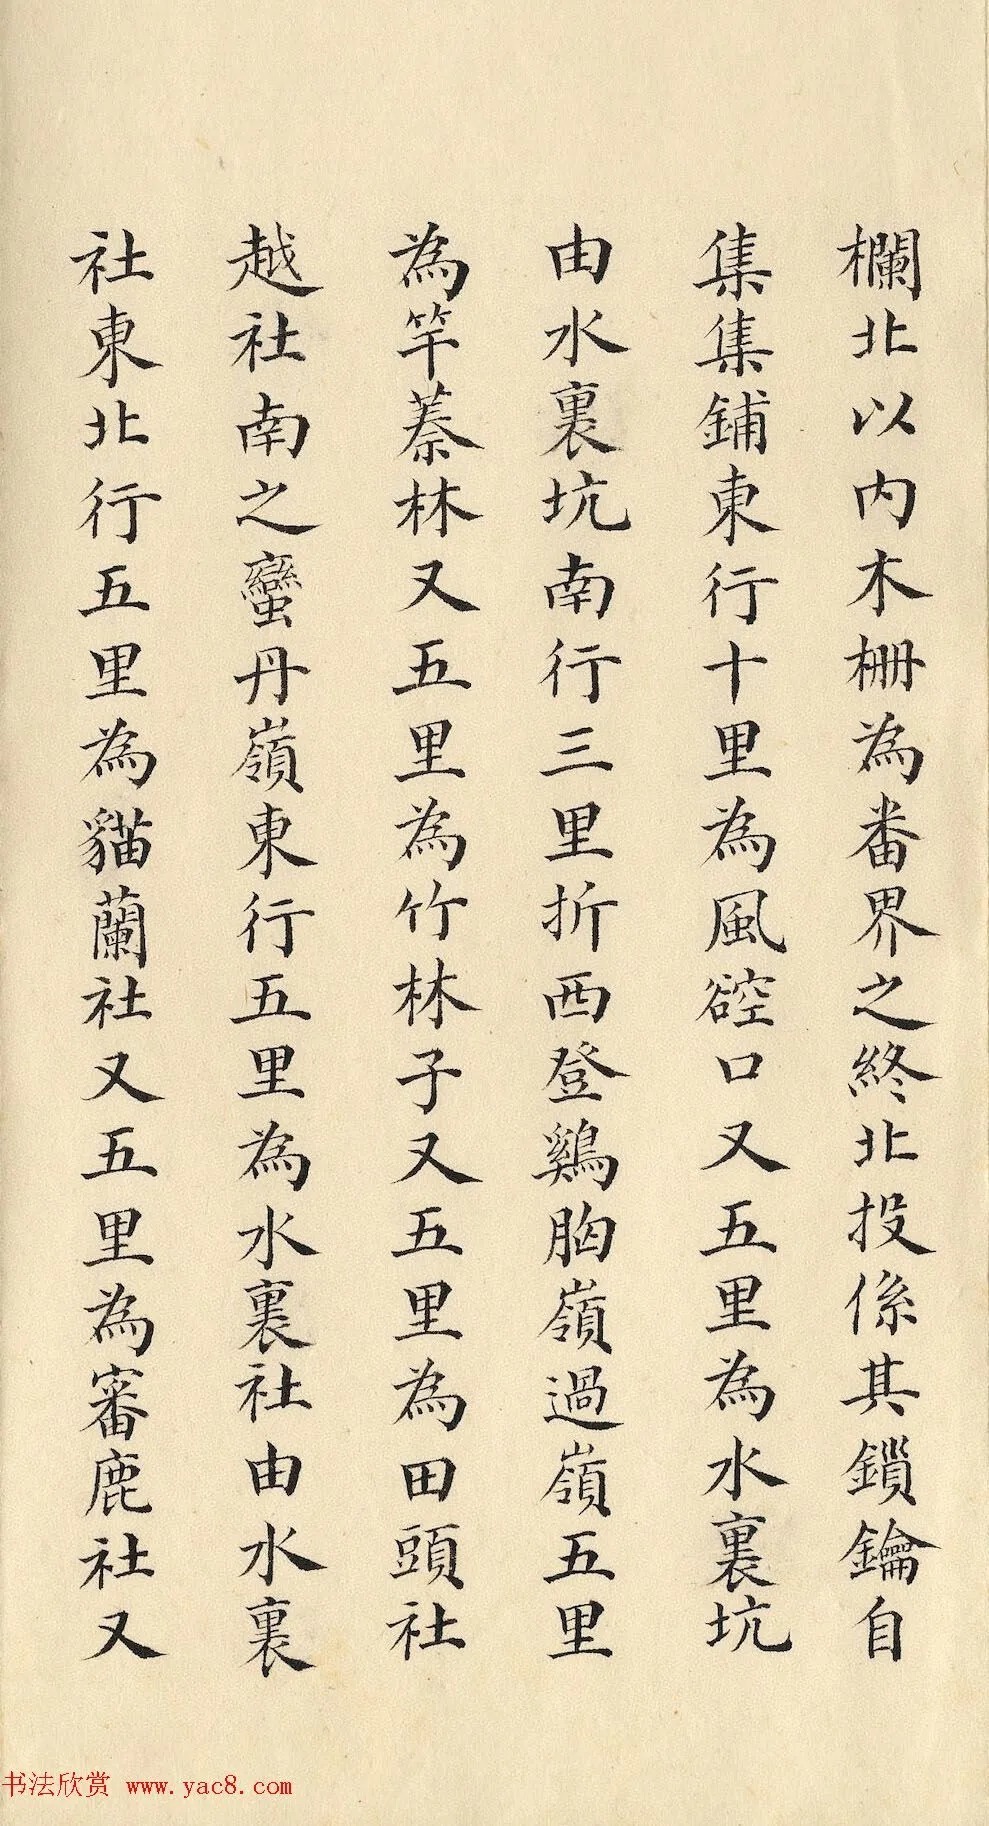 欄北以內木柵為番界之終北投係其鎖鑰自
集集鋪東行十里為風硿口又五里為水裏坑
由水裏坑南行三里折西登鷄胸嶺過嶺五里
為竿蓁林又五里為竹林子又五里為田頭社
越社南之蠻丹嶺東行五里為水裏社由水裏
社東北行五里為貓蘭社又五里為審鹿社又
书法欣赏 www.yac8.com